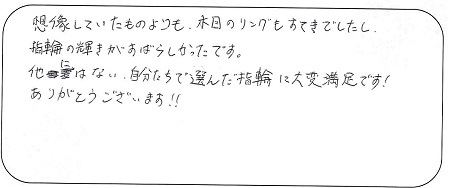 想像していたものよりも、木目のリングもすてきでしたし、
指輪の輝きがすばらしかったです。
他にはない、自分たちで選んだ指輪に大変満足です!
ありがとうございます!!